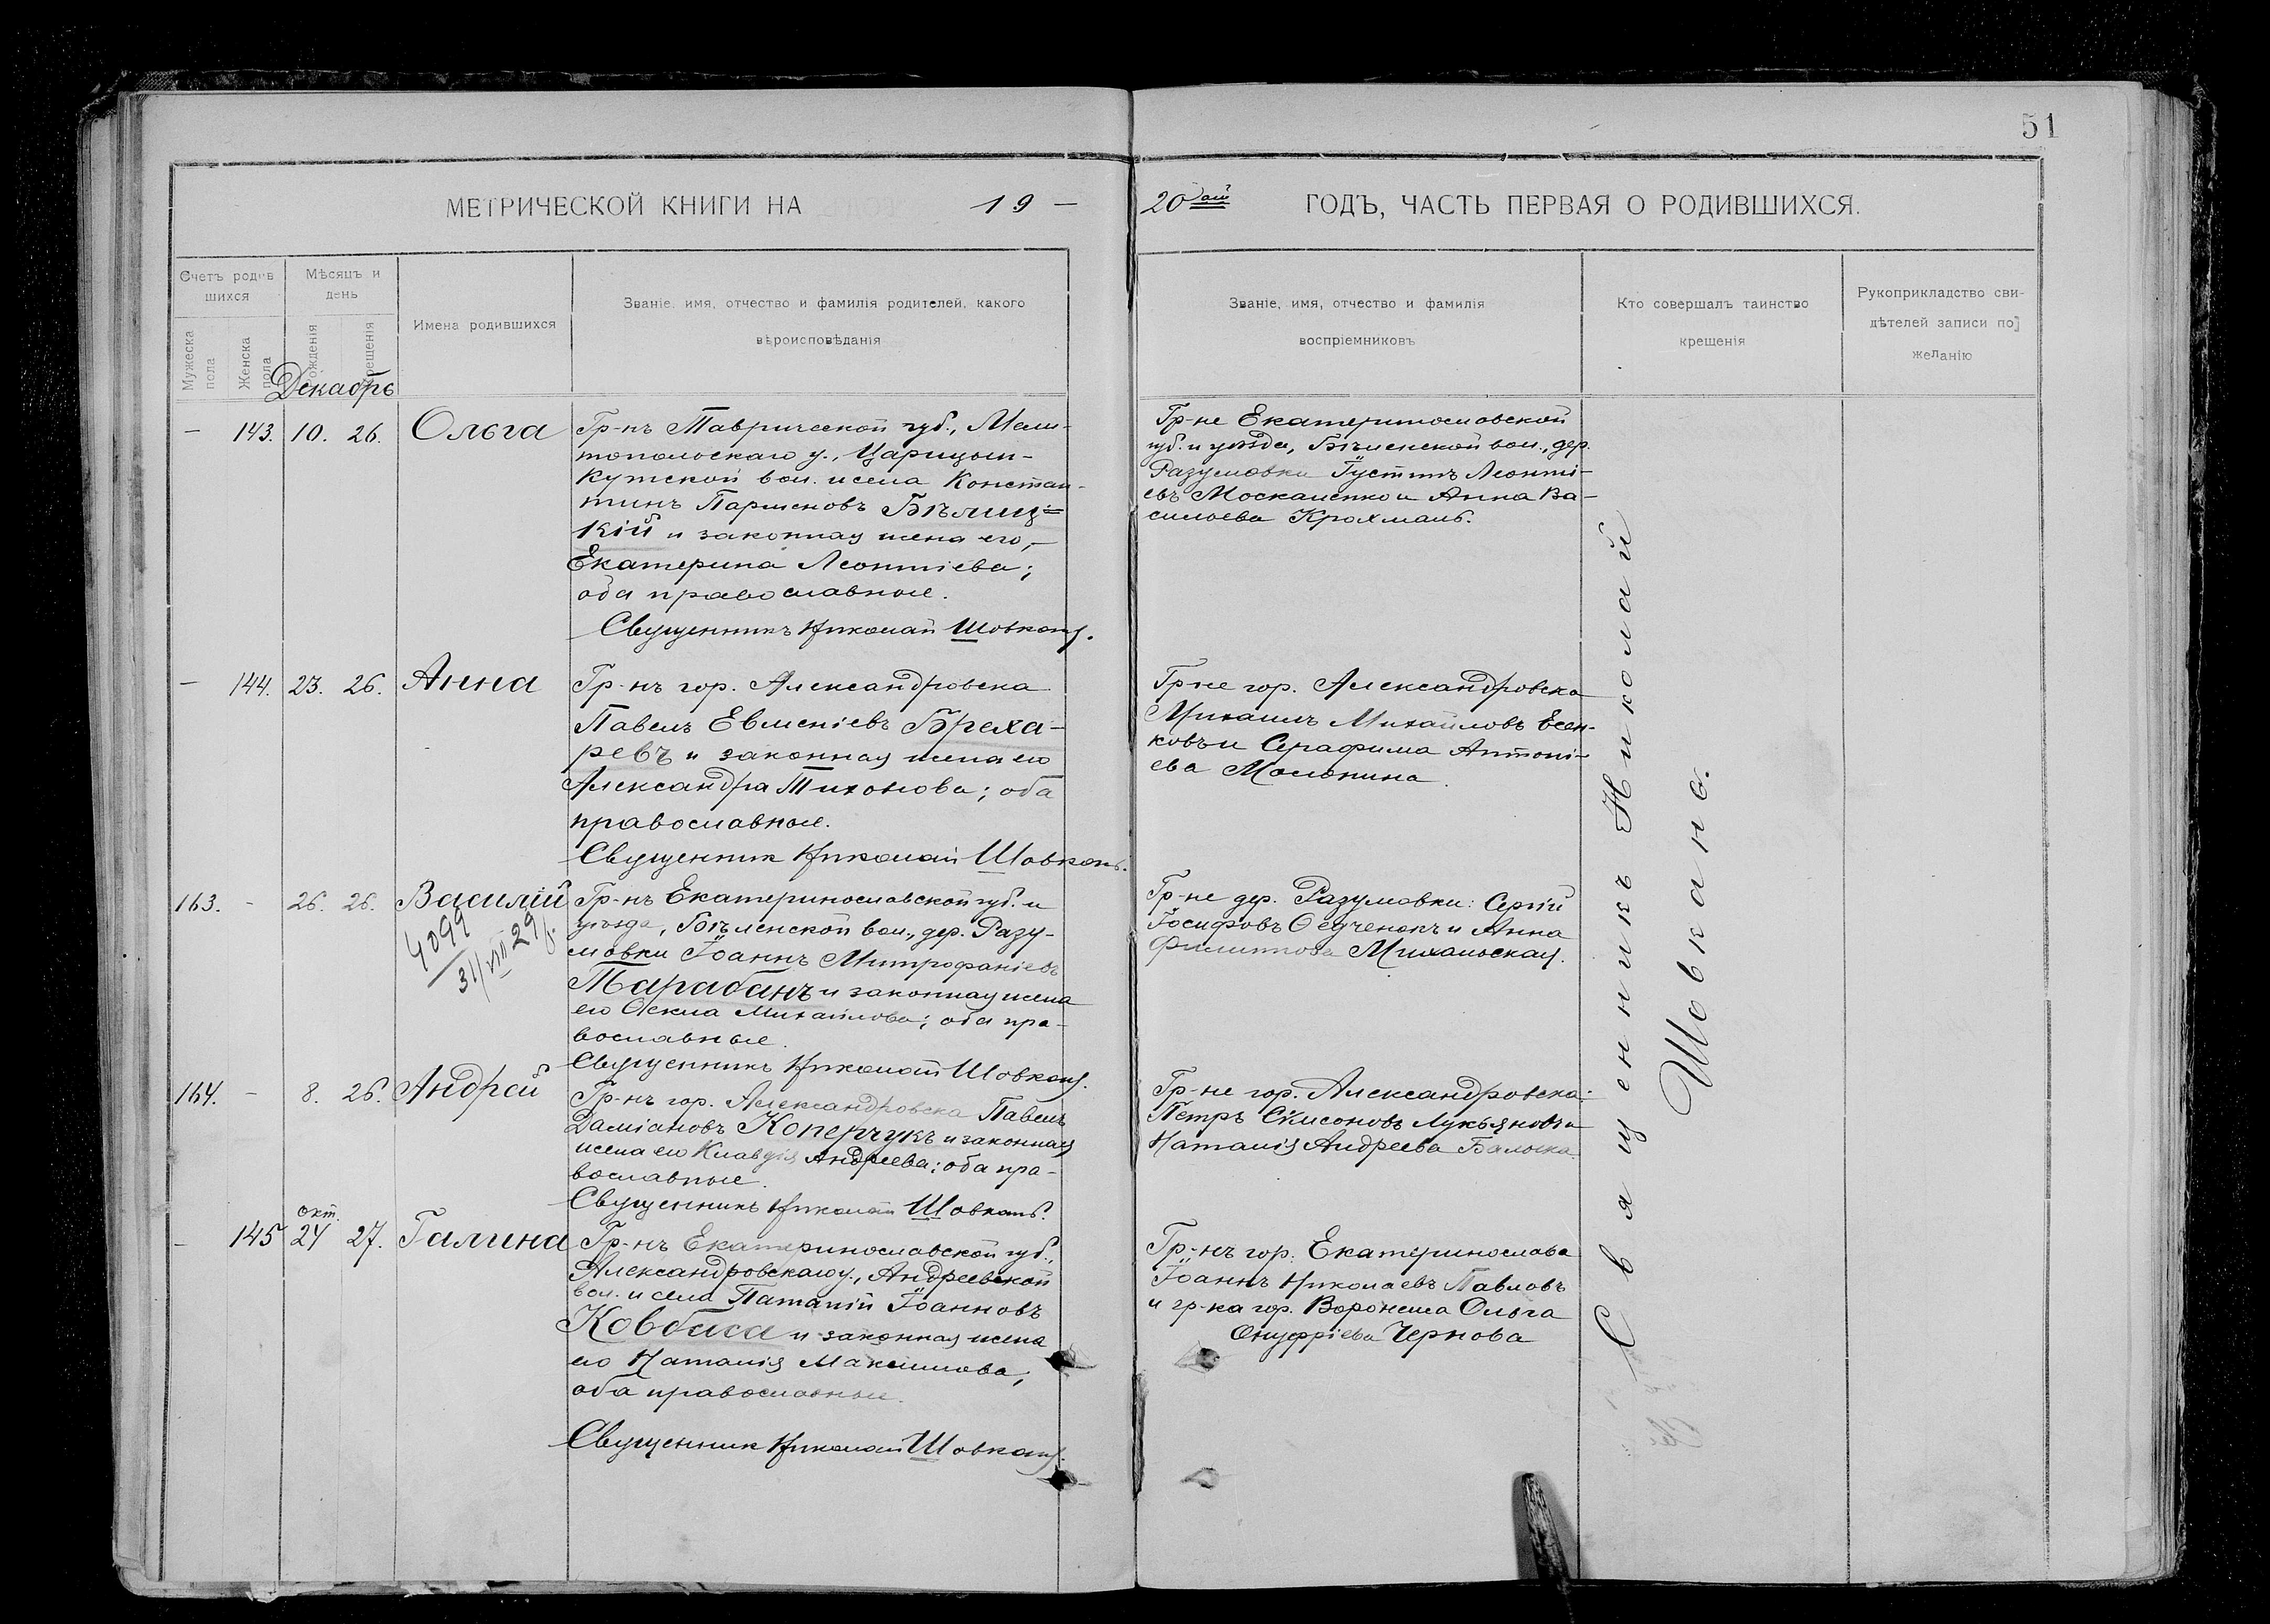 51
МЕТРИЧЕСКОЙ КНИГИ НА 19 —
20ый ГОДЪ, ЧАСТЬ ПЕРВАЯ О РОДИВШИХСЯ.
Счетъ родив
шихся
Мужеска
пола
Женска
пола
Мѣсяцъ и
день
рожденія
крещенія
Имена родившихся
Званіе, имя, отчество и фамилія родителей, какого
вѣроисповѣданія
Званіе, имя, отчество и фамилія
воспріемниковъ
Кто совершалъ таинство
крещенія
Рукоприкладство сви-
дѣтелей записи по
желанію
Декабрь
— 143. 10. 26. Ольга
Гр-нъ Таврической губ., Мели-
топольскаго у., Царицын-
Кутской вол. и села Констан-
тинъ Парѳеновъ Бѣлиц=
кій и законная жена его,—
Екатерина Леонтіева;
оба православные.
Священникъ Николай Шовкань.
Гр-не Екатеринославской
губ. и уѣзда, Бѣленской вол., дер.
Разумовки Іустинъ Леонті-
евъ Москаленко и Анна Ва-
сильева Крохмаль.
— 144. 23. 26. Анна
Гр-нъ гор. Александровска
Павелъ Евменіевъ Бреха-
ревъ и законная жена его
Александра Тихонова; оба
православные.
Священник Николай Шовкань.
Гр-не гор. Александровска
Михаилъ Михайловъ Есен-
ковъ и Серафима Антоні-
ева Молонина.
163. - 26. 26. Василій
4099
31/VIII 29
Гр-нъ Екатеринославской губ. и
уѣзда, Бѣленской вол., дер. Разу-
мовки Іоаннъ Митрофаніевъ
Тарабанъ и законная жена
его Михайлова; оба пра-
вославные.
Священникъ Николай Шовкань.
Гр-не дер. Разумовки: Сергій
Іосифовъ Ѳедченокъ и Анна
Филиппова Михальская.
164. - 8. 26. Андрей
Гр-нъ гор. Александровска Павелъ
Даміановъ Коперчукъ и законная
жена его Клавдія Андреева; оба пра-
вославные.
Священникъ Николай Шовкань.
Гр-не гор. Александровска:
Петръ Лукьяновъ и
Наталія Андреева
- 145 окт. 24 27. Галина
Гр-нъ Екатеринославской губ.,
Александровскаго у., Андреевской
вол. и села Іоанновъ
Ковбаса и законная жена
его Наталія Максимова;
оба православные.
Священник Николай Шовкань.
Гр-нъ гор. Екатеринослава
Іоаннъ Николаевъ Павловъ
и гр-ка гор. Воронежа Ольга
Онуфріева Чернова
Священникъ Николай
Шовкань.